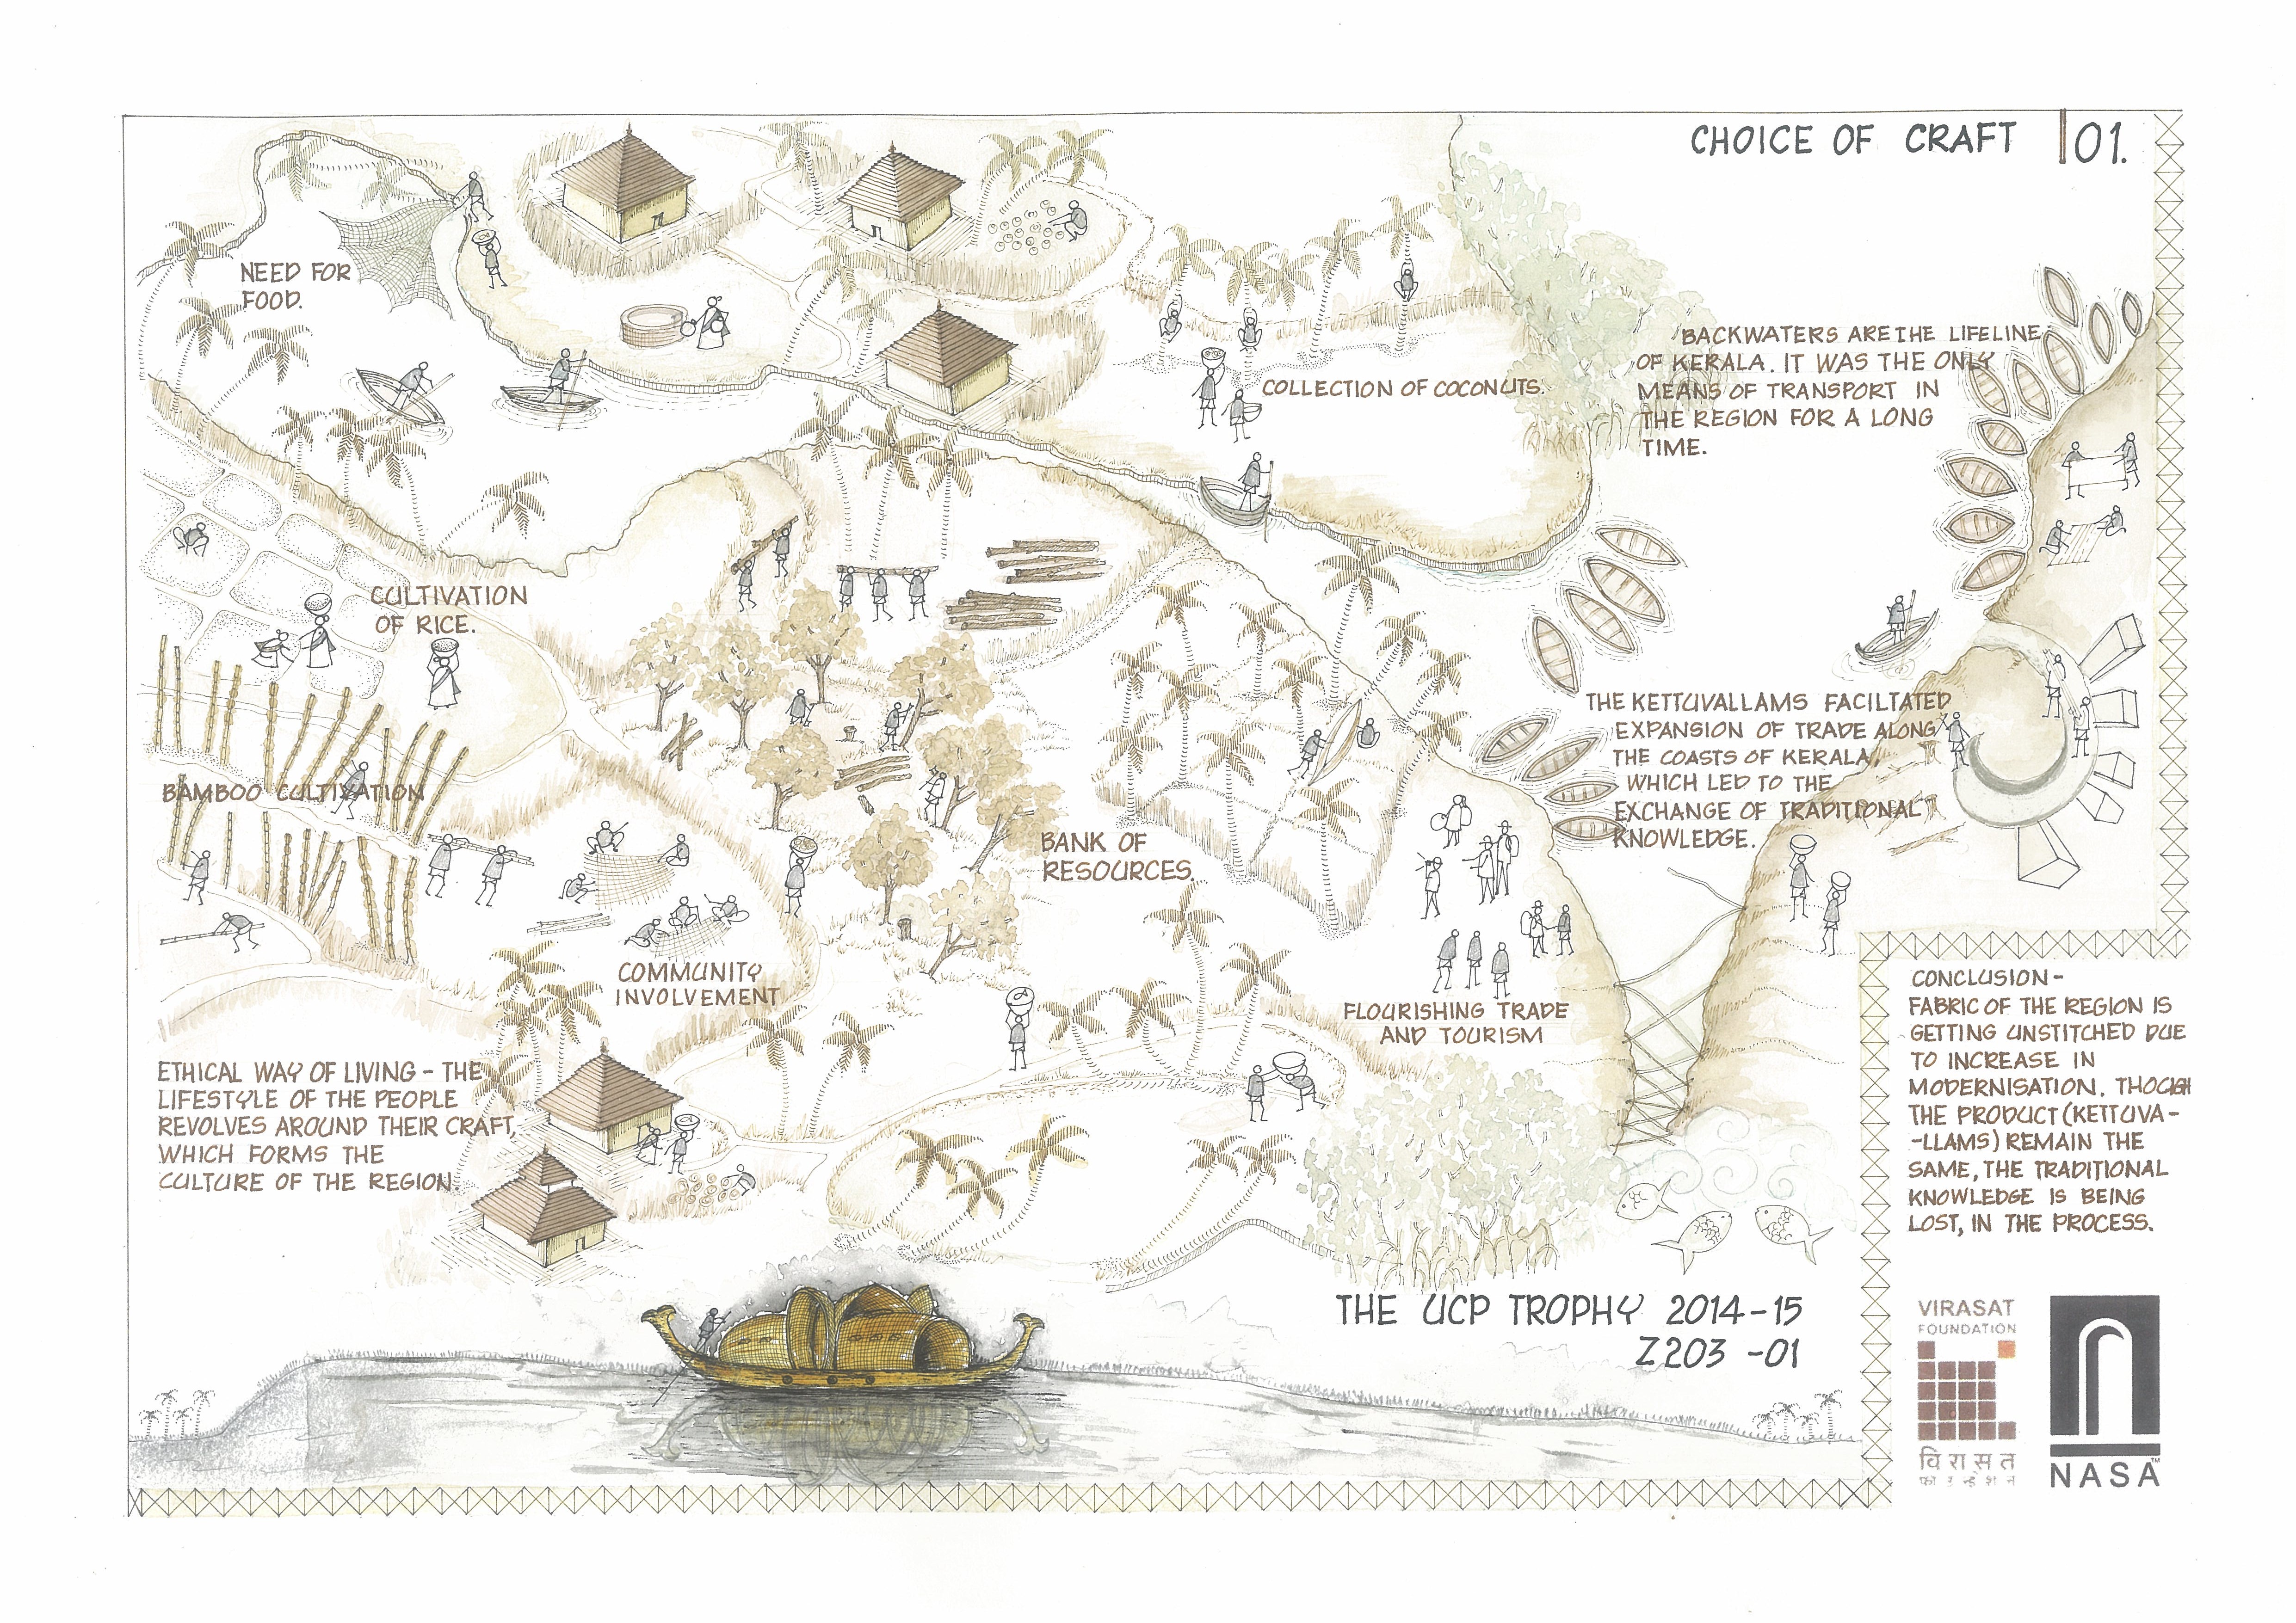 CHOICE OF CRAFT | 01.
NEED FOR
FOOD.
COLLECTION OF COCONUTS.
BACKWATERS ARE THE LIFELINE
OF KERALA. IT WAS THE ONLY
MEANS OF TRANSPORT IN
THE REGION FOR A LONG
TIME.
CULTIVATION
OF RICE.
THE KETTUVALLAMS FACILTATED
EXPANSION OF TRADE ALONG
THE COASTS OF KERALA,
WHICH LED TO THE
EXCHANGE OF TRADITIONAL
KNOWLEDGE.
BAMBOO CULTIVATION
BANK OF
RESOURCES.
COMMUNITY
INVOLVEMENT
FLOURISHING TRADE
AND TOURISM
ETHICAL WAY OF LIVING - THE
LIFESTYLE OF THE PEOPLE
REVOLVES AROUND THEIR CRAFT,
WHICH FORMS THE
CULTURE OF THE REGION.
CONCLUSION-
FABRIC OF THE REGION IS
GETTING UNSTITCHED DUE
TO INCREASE IN
MODERNISATION. THOUGH
THE PRODUCT (KETTUVA-
-LLAMS) REMAIN THE
SAME, THE TRADITIONAL
KNOWLEDGE IS BEING
LOST, IN THE PROCESS.
THE UCP TROPHY 2014-15
Z203 -01
VIRASAT
FOUNDATION
विरासत
फाउन्डेशन
NASA™